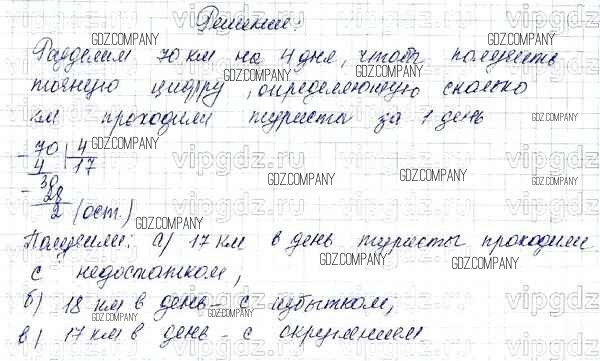 Решение:
Разделим 70 км на 4 дня, чтобы получить
точную цифру, определяющую сколько
км проходили туристы за 1 день
- 70 | 4
4 | 17
- 30
28
2 (ост.)
Получили: а) 17 км в день туристы проходили
с недостатком,
б) 18 км в день - с избытком,
в) 17 км в день - с округлением
GDZ.COMPANY
vipgdz.ru